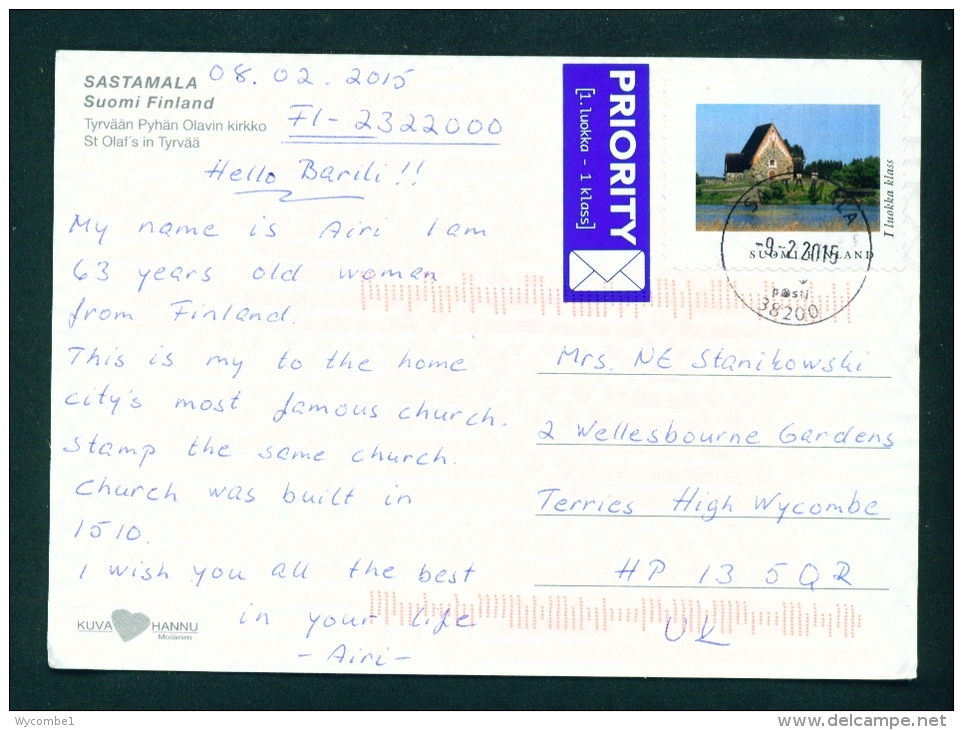 SASTAMALA
Suomi Finland
Tyrvään Pyhän Olavin kirkko
St Olaf's in Tyrvää
08.02.2015
FI-2322000
Hello Barili!!
My name is Airi I am
63 years old woman
from Finland.
This is my to the home
city's most famous church.
Stamp the same church.
Church was built in
1510.
I wish you all the best
in your life
- Airi -
KUVA HANNU
Moilanen
PRIORITY
[1. luokka - 1 klass]
I luokka klass
SUOMI FINLAND
-9.-2.2015
posti
38200
Mrs. NE Stanikowski
2 Wellesbourne Gardens
Terries High Wycombe
HP 13 5QR
UK
Wycombe1
www.delcampe.net